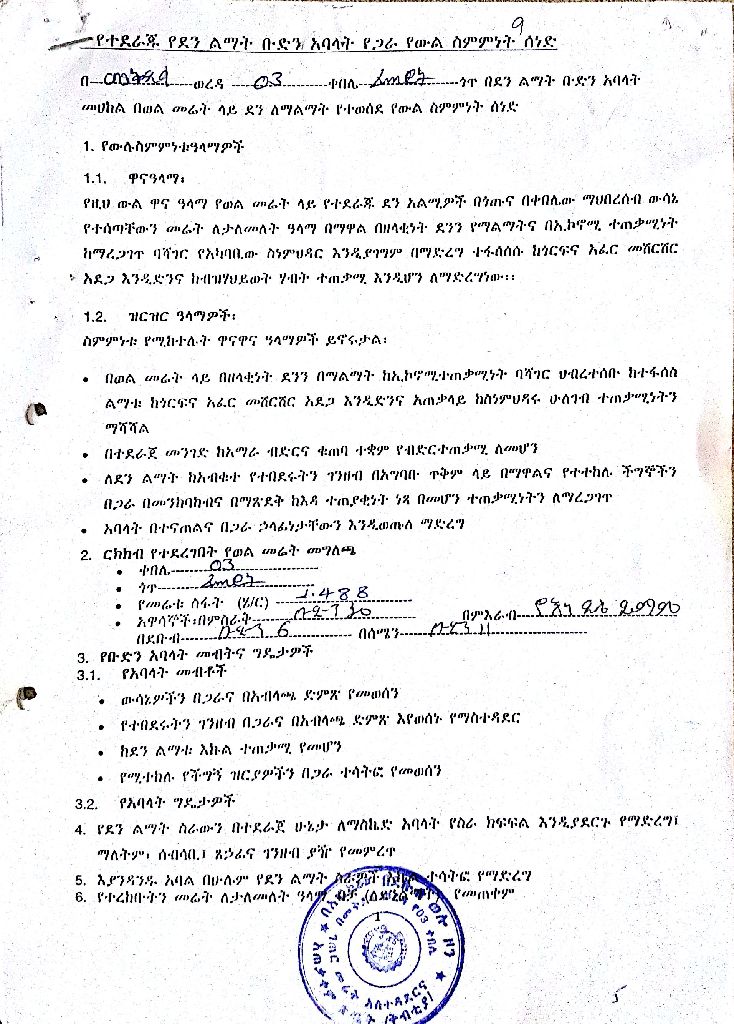 9
የተደራጁ የደን ልማት ቡድን አባላት የጋራ የውል ስምምነት ሰነድ
በ ወረዳ 03 ቀበሌ ጎጥ በደን ልማት ቡድን አባላት
መሀከል በወል መሬት ላይ ደን ለማልማት የተወሰደ የውል ስምምነት ሰነድ
1. የውሉስምምነቱዓላማዎች
1.1. ዋናዓላማ፡
የዚህ ውል ዋና ዓላማ የወል መሬት ላይ የተደራጁ ደን አልሚዎች በጎጡና በቀበሌው ማህበረሰብ ውሳኔ
የተሰጣቸውን መሬት ለታለመለት ዓላማ በማዋል በዘላቂነት ደንን የማልማትና በኢኮኖሚ ተጠቃሚነት
ከማረጋገጥ ባሻገር የአካባቢው ስነምህዳር እንዲያገግም በማድረግ ተፋሰሱ ከጎርፍና አፈር መሸርሸር
አደጋ እንዲድንና ከብዝሃህይወት ሃብት ተጠቃሚ እንዲሆን ለማድረግነው፡፡
1.2. ዝርዝር ዓላማዎች፡
ስምምነቱ የሚከተሉት ዋናዋና ዓላማዎች ይኖሩታል፡
• በወል መሬት ላይ በዘላቂነት ደንን በማልማት ከኢኮኖሚተጠቃሚነት ባሻገር ህብረተሰቡ ከተፋሰስ
ልማቱ ከጎርፍና አፈር መሸርሸር አደጋ እንዲድንና አጠቃላይ ከስነምህዳሩ ሁለገብ ተጠቃሚነትን
ማሻሻል
• በተደራጀ መንገድ ከአማራ ብድርና ቁጠባ ተቋም የብድርተጠቃሚ ለመሆን
• ለደን ልማት ከአብቁተ የተበደሩትን ገንዘብ በአግባቡ ጥቅም ላይ በማዋልና የተተከሉ ችግኞችን
በጋራ በመንከባከብና በማጽደቅ ከእዳ ተጠያቂነት ነጻ በመሆን ተጠቃሚነትን ለማረጋገጥ
• አባላት በተናጠልና በጋራ ኃላፊነታቸውን እንዲወጡ ማድረግ
2. ርክክብ የተደረገበት የወል መሬት መግለጫ
• ቀበሌ 03
• ጎጥ
• የመሬቱ ስፋት (ሄ/ር) 1.488
• አዋሳኞች፡በምስራቅ በምእራብ
በደቡብ በሰሜን
3. የቡድን አባላት መብትና ግዴታዎች
3.1. የአባላት መብቶች
• ውሳኔዎችን በጋራና በአብላጫ ድምጽ የመወሰን
• የተበደሩትን ገንዘብ በጋራና በአብላጫ ድምጽ እየወሰኑ የማስተዳደር
• ከደን ልማቱ እኩል ተጠቃሚ የመሆን
• የሚተከሉ የችግኝ ዝርያዎችን በጋራ ተሳትፎ የመወሰን
3.2. የአባላት ግዴታዎች
4. የደን ልማት ስራውን በተደራጀ ሁኔታ ለማስኬድ አባላት የስራ ክፍፍል እንዲያደርጉ የማድረግ፤
ማለትም፡ ሰብሳቢ፤ ጸኃፊና ገንዘብ ያዥ የመምረጥ
5. እያንዳንዱ አባል በሁሉም የደን ልማት ተሳትፎ የማድረግ
6. የተረከቡትን መሬት ለታለመለት ዓላማ ብቻ የመጠቀም
1